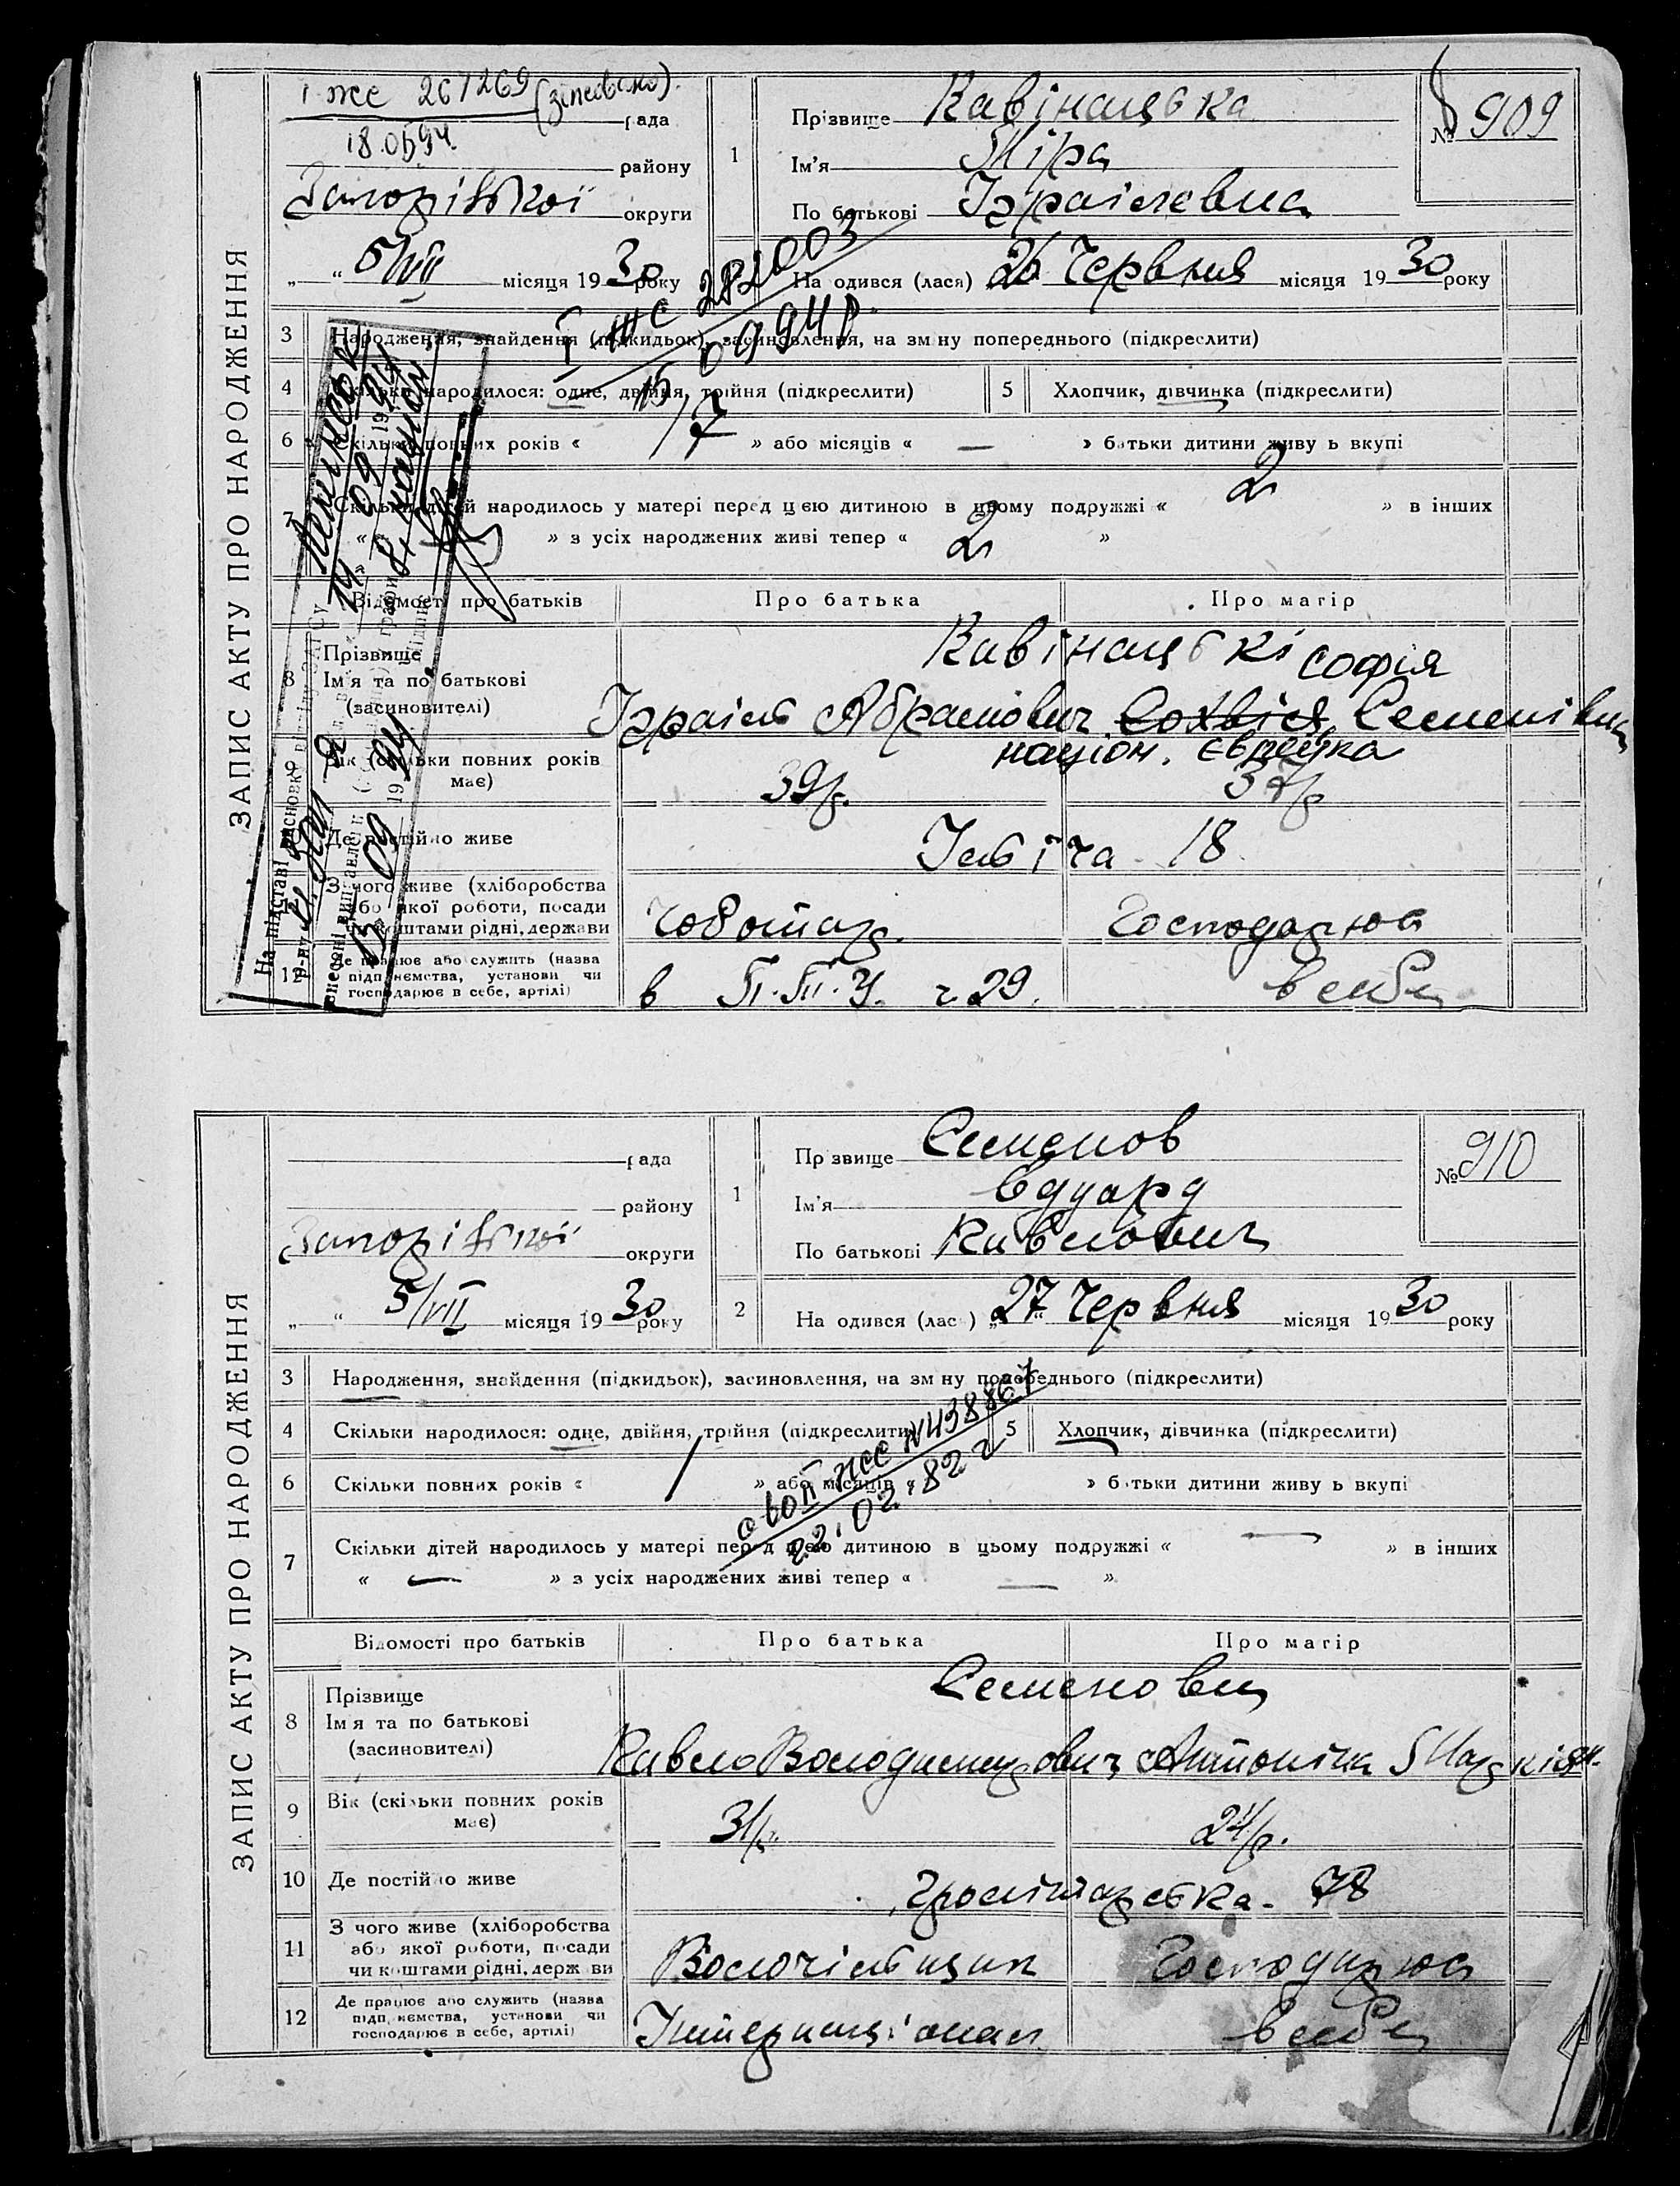 ЗАПИС АКТУ ПРО НАРОДЖЕННЯ
I жс 261269
18.0594.
рада
району
Запорізької округи
„ “ 5/VII місяця 1930 року
1
Прізвище Кавінацька
Ім'я Міра
По батькові Ізраілевна
№ 909
На одився (лася) 26 Червня місяця 1930 року
I жс 282003
15 09 94 р.
3 Народження, знайдення (підкидьок), засиновлення, на зм ну попереднього (підкреслити)
4 Скільки народилося: одне, двійня, трійня (підкреслити)
5 Хлопчик, дівчинка (підкреслити)
6 Скільки повних років « 7 » або місяців « — » батьки дитини живу ь вкупі
7 Скільки дітей народилось у матері перед цією дитиною в цьому подружжі « 2 » в інших
« » з усіх народжених живі тепер « 2 »
Відомості про батьків
Про батька
Про матір
8 Прізвище
Ім'я та по батькові
(засиновителі)
Кавінацькі
Софія
Ізраіль Абрамович Сохвія Семенівна
націон. єврейка
9 Вік (скільки повних років має)
39/р.
37/р
Де постійно живе
Ілліча 18
З чого живе (хліборобства
або якої роботи, посади
чи коштами рідні, держави
Чоботар.
Господарює
12 Де працює або служить (назва
підп иємства, установи чи
господарює в себе, артілі)
в П.П.У. ч. 29.
в себе
На підставі
ЗАПИС АКТУ ПРО НАРОДЖЕННЯ
рада
району
Запорізької округи
„ “ 5/VII місяця 1930 року
1
Пр звище Семенов
Ім'я Едуард
По батькові Павлович
№ 910
2 На одився (лас ) „27“ Червня місяця 1930 року
3 Народження, знайдення (підкидьок), засиновлення, на зм ну попереднього (підкреслити)
4 Скільки народилося: одне, двійня, трійня (підкреслити)
5 Хлопчик, дівчинка (підкреслити)
6 Скільки повних років « 1 » або місяців « » б тьки дитини живу ь вкупі
22.02.82 г
7 Скільки дітей народилось у матері перед цією дитиною в цьому подружжі « — » в інших
« — » з усіх народжених живі тепер « — »
Відомості про батьків
Про батька
Про матір
8 Прізвище
Ім'я та по батькові
(засиновителі)
Семенови
Павло Володимирович Антоніна
9 Вік (скільки повних років має)
31/р.
24/р.
10 Де постійно живе
78
11 З чого живе (хліборобства
або якої роботи, посади
чи коштами рідні, держ ви
Господарює
12 Де працює або служить (назва
підп иємства, установи чи
господарює в себе, артілі)
Інтернаціонал
в себе